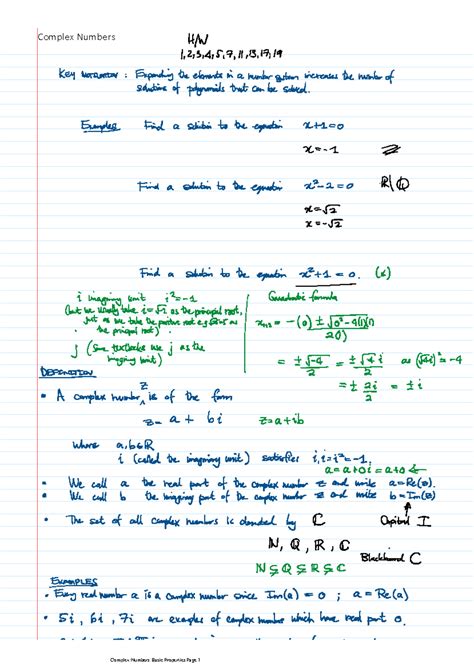 Complex Numbers
H/W
1,2,3,4,5,7,11,13,17,19
KEY MOTIVATION : Expanding the elements in a number system increases the number of
solutions of polynomials that can be solved.
Examples Find a solution to the equation x+1=0
x=-1 ℤ
Find a solution to the equation x²-2=0 ℝ\ℚ
x=√2
x=-√2
Find a solution to the equation x²+1=0. (x)
i imaginary unit i²=-1
(but we usually take i=√-1 as the principal root,
just as we take the positive root e.g. as
the principal root)
j (Some textbooks use j as the
imaginary unit)
Quadratic formula
= -(0) ± √0²-4(1)(1)
2(1)
= ±√-4 / 2 = ±√4 i / 2 as (√4 i)²=-4
= ± 2i / 2 = ± i
DEFINITION
• A complex number, z is of the form
z = a + bi z=a+ib
where a,b∈ℝ
i (called the imaginary unit) satisfies i.i=i²=-1.
a=a+0i=a+0
• We call a the real part of the complex number z and write a=Re(z).
• We call b the imaginary part of the complex number z and write b=Im(z)
• The set of all complex numbers is denoted by ℂ Capital I
ℕ, ℚ, ℝ, ℂ
Blackboard C
ℕ⊊ℚ⊊ℝ⊊ℂ
EXAMPLES
• Every real number a is a complex number since Im(a) = 0 ; a = Re(a)
• 5i , 6i , 7i are examples of complex number which have real part 0.
Complex Numbers Basic Properties Page 1